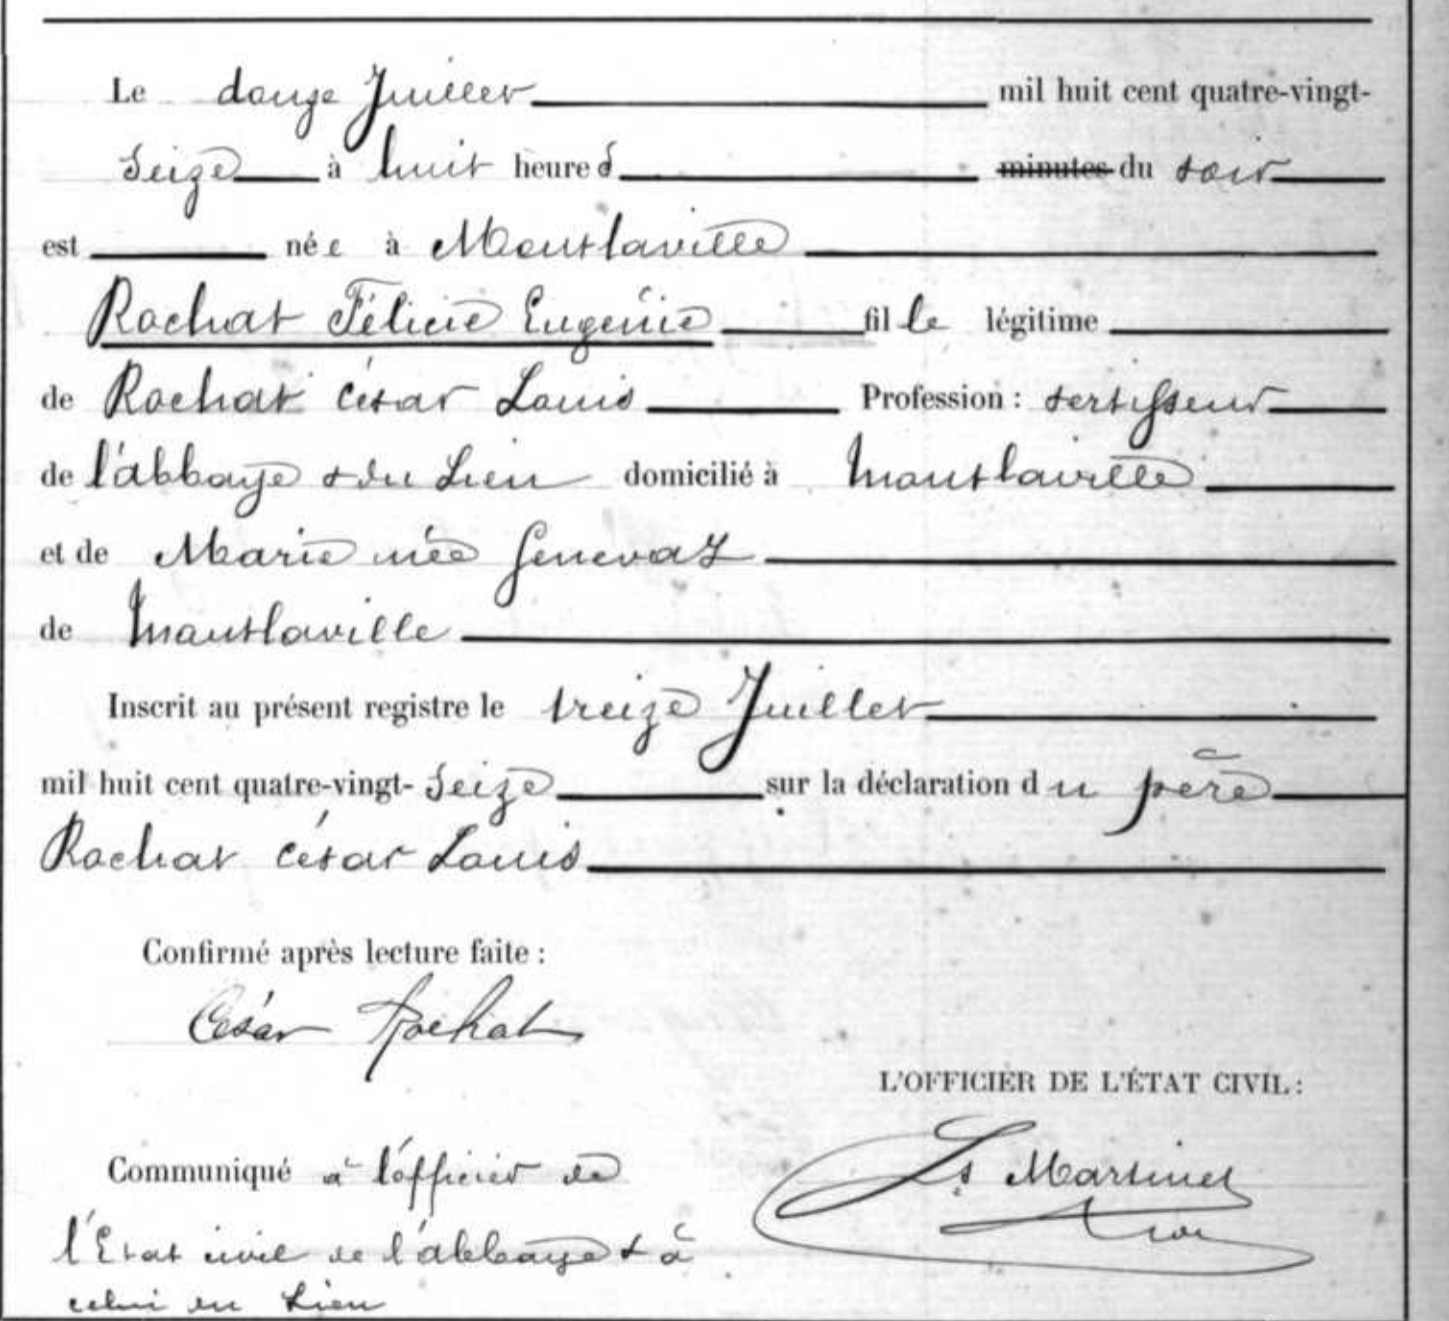 Le douze Juillet mil huit cent quatre-vingt-
seize à huit heures minutes du soir
est née à Montlaville
Rochat Félicie Eugénie fille légitime
de Rochat César Louis Profession : sertisseur
de l'abbaye & du Lieu domicilié à Montlaville
et de Marie née Genevaz
de Montlaville
Inscrit au présent registre le treize Juillet
mil huit cent quatre-vingt- seize sur la déclaration du père
Rochat César Louis
Confirmé après lecture faite :
César Rochat
L'OFFICIER DE L'ÉTAT CIVIL :
Ls Martinet
Communiqué à l'officier de
l'Etat civil de l'abbaye & à
celui du Lieu